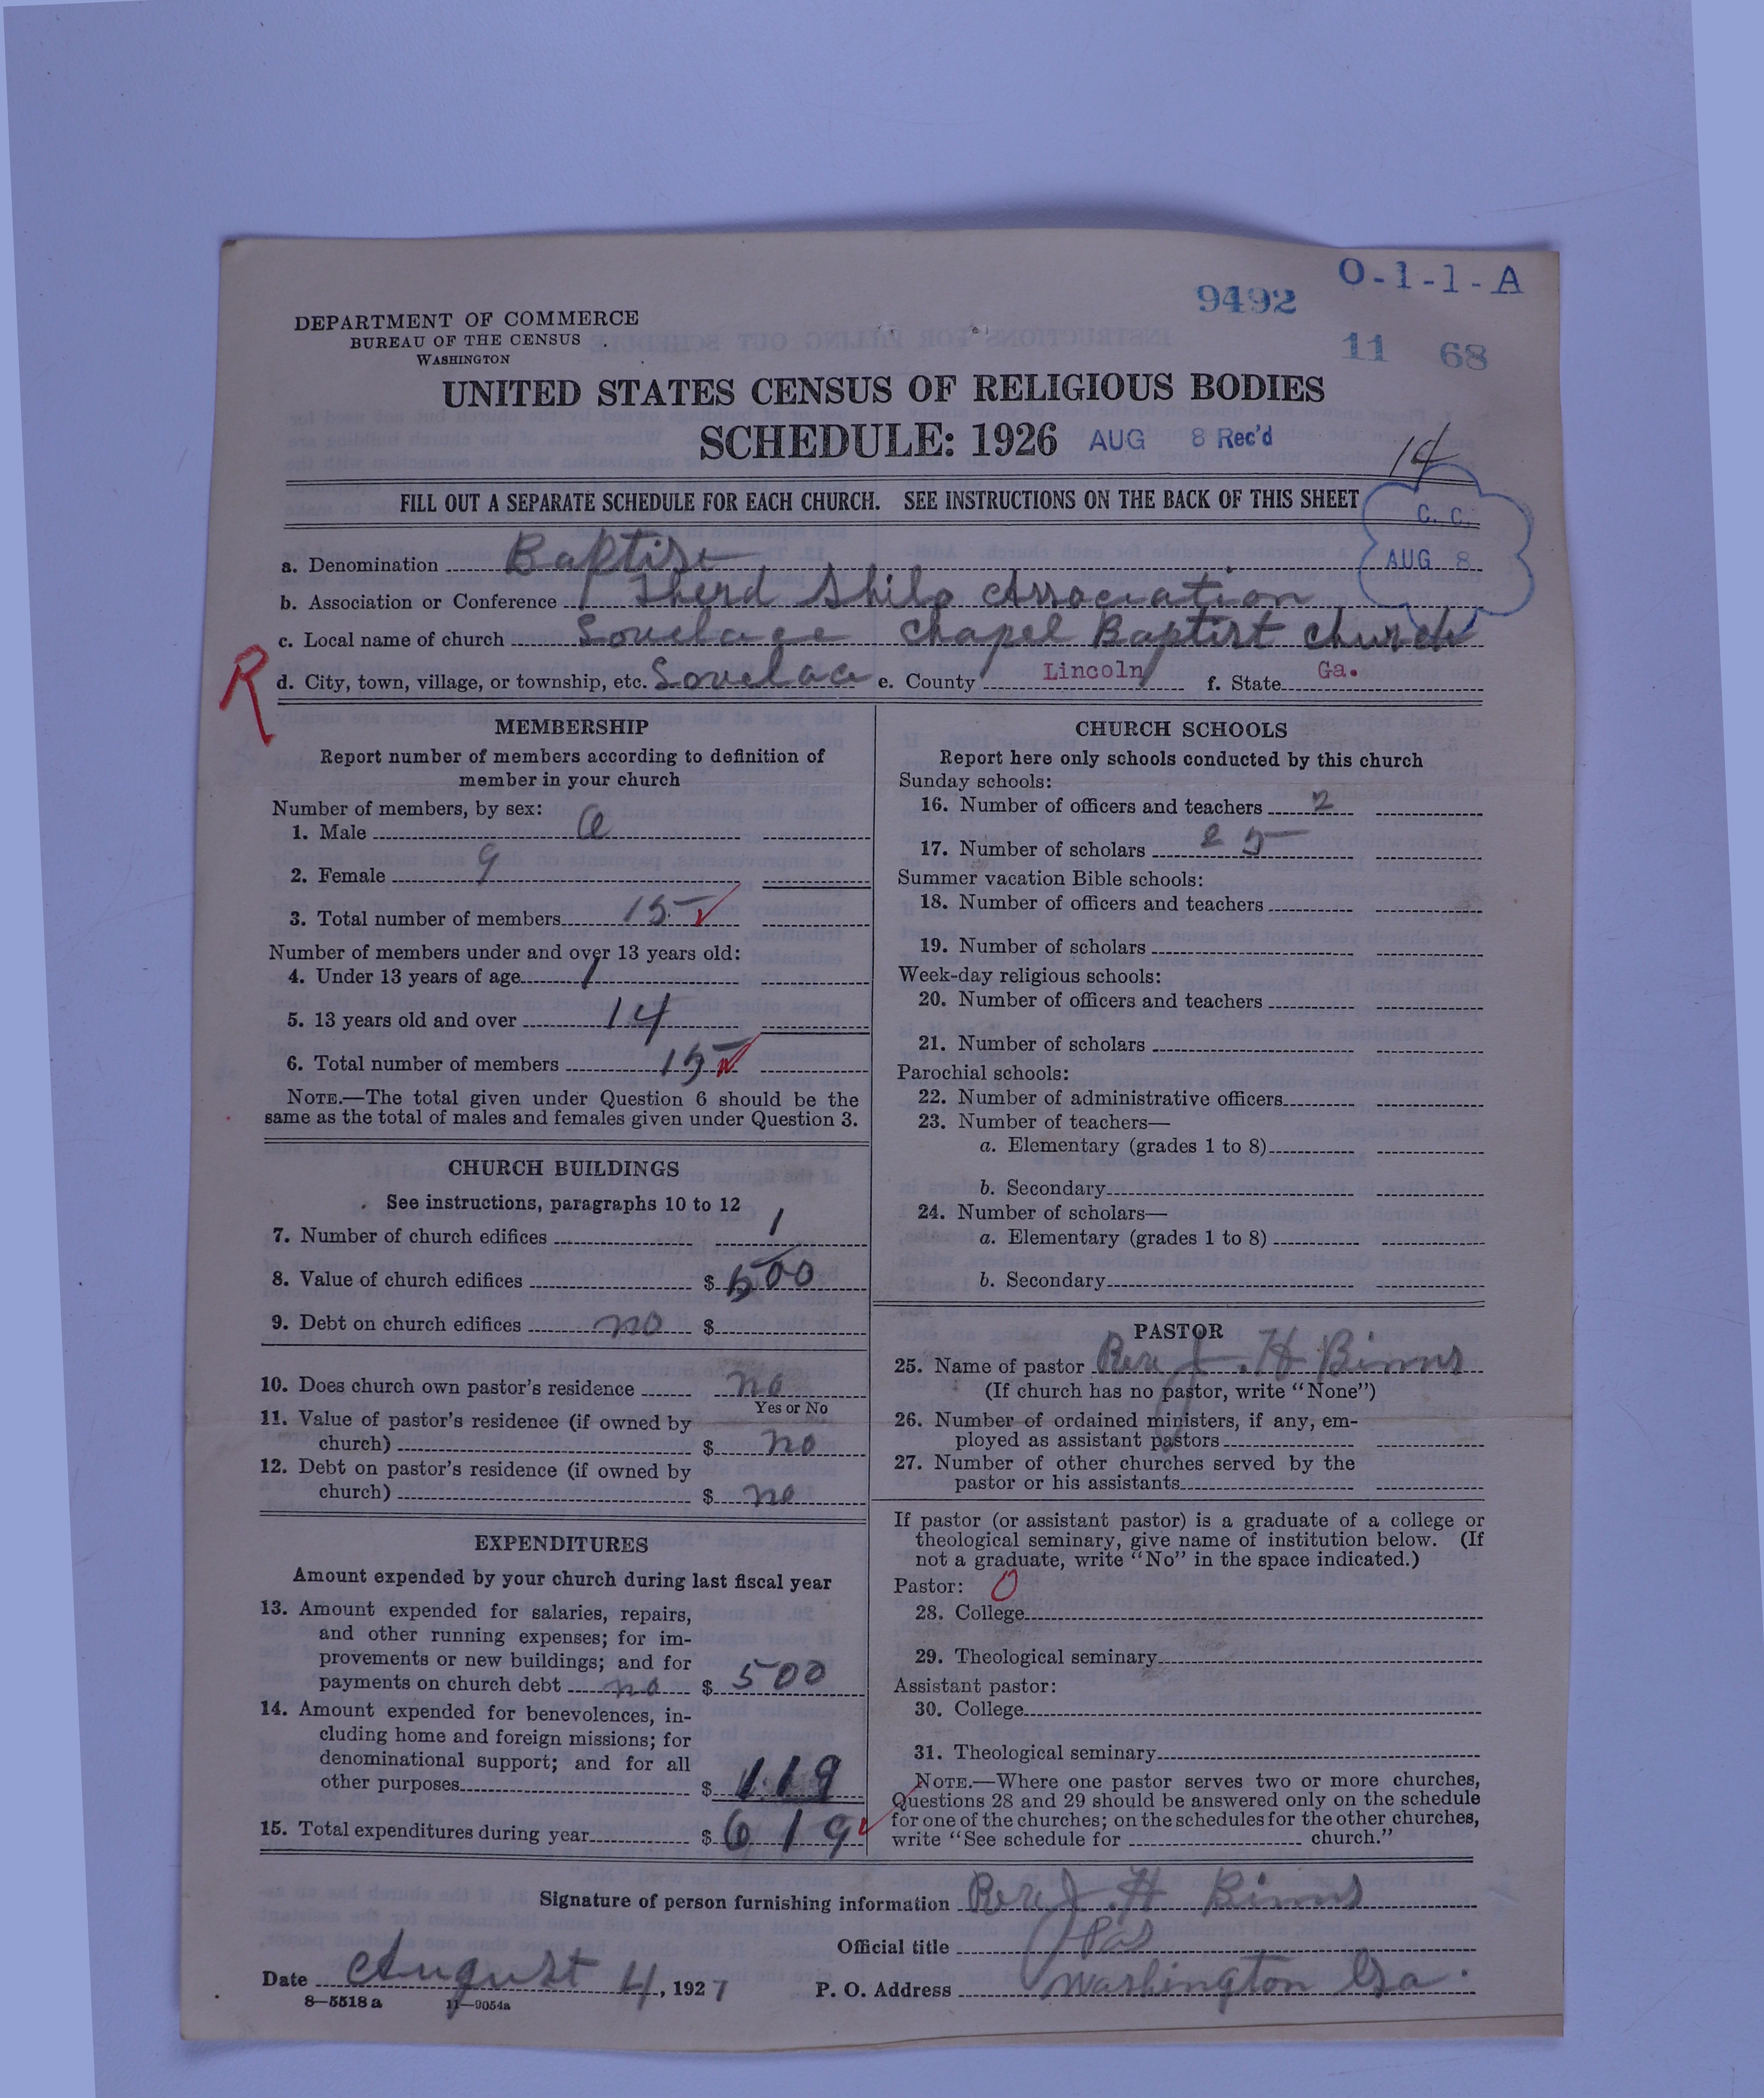 O-1-1-A
9492
11 68
DEPARTMENT OF COMMERCE
BUREAU OF THE CENSUS
WASHINGTON
UNITED STATES CENSUS OF RELIGIOUS BODIES
SCHEDULE: 1926 AUG 8 Rec'd
14
FILL OUT A SEPARATE SCHEDULE FOR EACH CHURCH. SEE INSTRUCTIONS ON THE BACK OF THIS SHEET
C. C.
AUG 8
a. Denomination Baptist
b. Association or Conference Therd Shilo Association
c. Local name of church Lovelace Chapel Baptist Church
R
d. City, town, village, or township, etc. Lovelac e. County Lincoln f. State Ga.
MEMBERSHIP
Report number of members according to definition of
member in your church
Number of members, by sex:
1. Male 6
2. Female 9
3. Total number of members 15
Number of members under and over 13 years old:
4. Under 13 years of age 1
5. 13 years old and over 14
6. Total number of members 15
NOTE.—The total given under Question 6 should be the
same as the total of males and females given under Question 3.
CHURCH BUILDINGS
See instructions, paragraphs 10 to 12
7. Number of church edifices 1
8. Value of church edifices $ 500
9. Debt on church edifices no $
10. Does church own pastor's residence no
Yes or No
11. Value of pastor's residence (if owned by
church) $ no
12. Debt on pastor's residence (if owned by
church) $ no
EXPENDITURES
Amount expended by your church during last fiscal year
13. Amount expended for salaries, repairs,
and other running expenses; for im-
provements or new buildings; and for
payments on church debt no $ 500
14. Amount expended for benevolences, in-
cluding home and foreign missions; for
denominational support; and for all
other purposes $ 119
15. Total expenditures during year $ 619
CHURCH SCHOOLS
Report here only schools conducted by this church
Sunday schools:
16. Number of officers and teachers 2
17. Number of scholars 25
Summer vacation Bible schools:
18. Number of officers and teachers
19. Number of scholars
Week-day religious schools:
20. Number of officers and teachers
21. Number of scholars
Parochial schools:
22. Number of administrative officers
23. Number of teachers—
a. Elementary (grades 1 to 8)
b. Secondary
24. Number of scholars—
a. Elementary (grades 1 to 8)
b. Secondary
PASTOR
25. Name of pastor Rev J. H Binns
(If church has no pastor, write "None")
26. Number of ordained ministers, if any, em-
ployed as assistant pastors
27. Number of other churches served by the
pastor or his assistants
If pastor (or assistant pastor) is a graduate of a college or
theological seminary, give name of institution below. (If
not a graduate, write "No" in the space indicated.)
Pastor: O
28. College
29. Theological seminary
Assistant pastor:
30. College
31. Theological seminary
NOTE.—Where one pastor serves two or more churches,
Questions 28 and 29 should be answered only on the schedule
for one of the churches; on the schedules for the other churches,
write "See schedule for church."
Signature of person furnishing information Rev J. H Binns
Official title Pas
Date August 4, 1927 P. O. Address Washington Ga.
8—5518 a 11—9054a